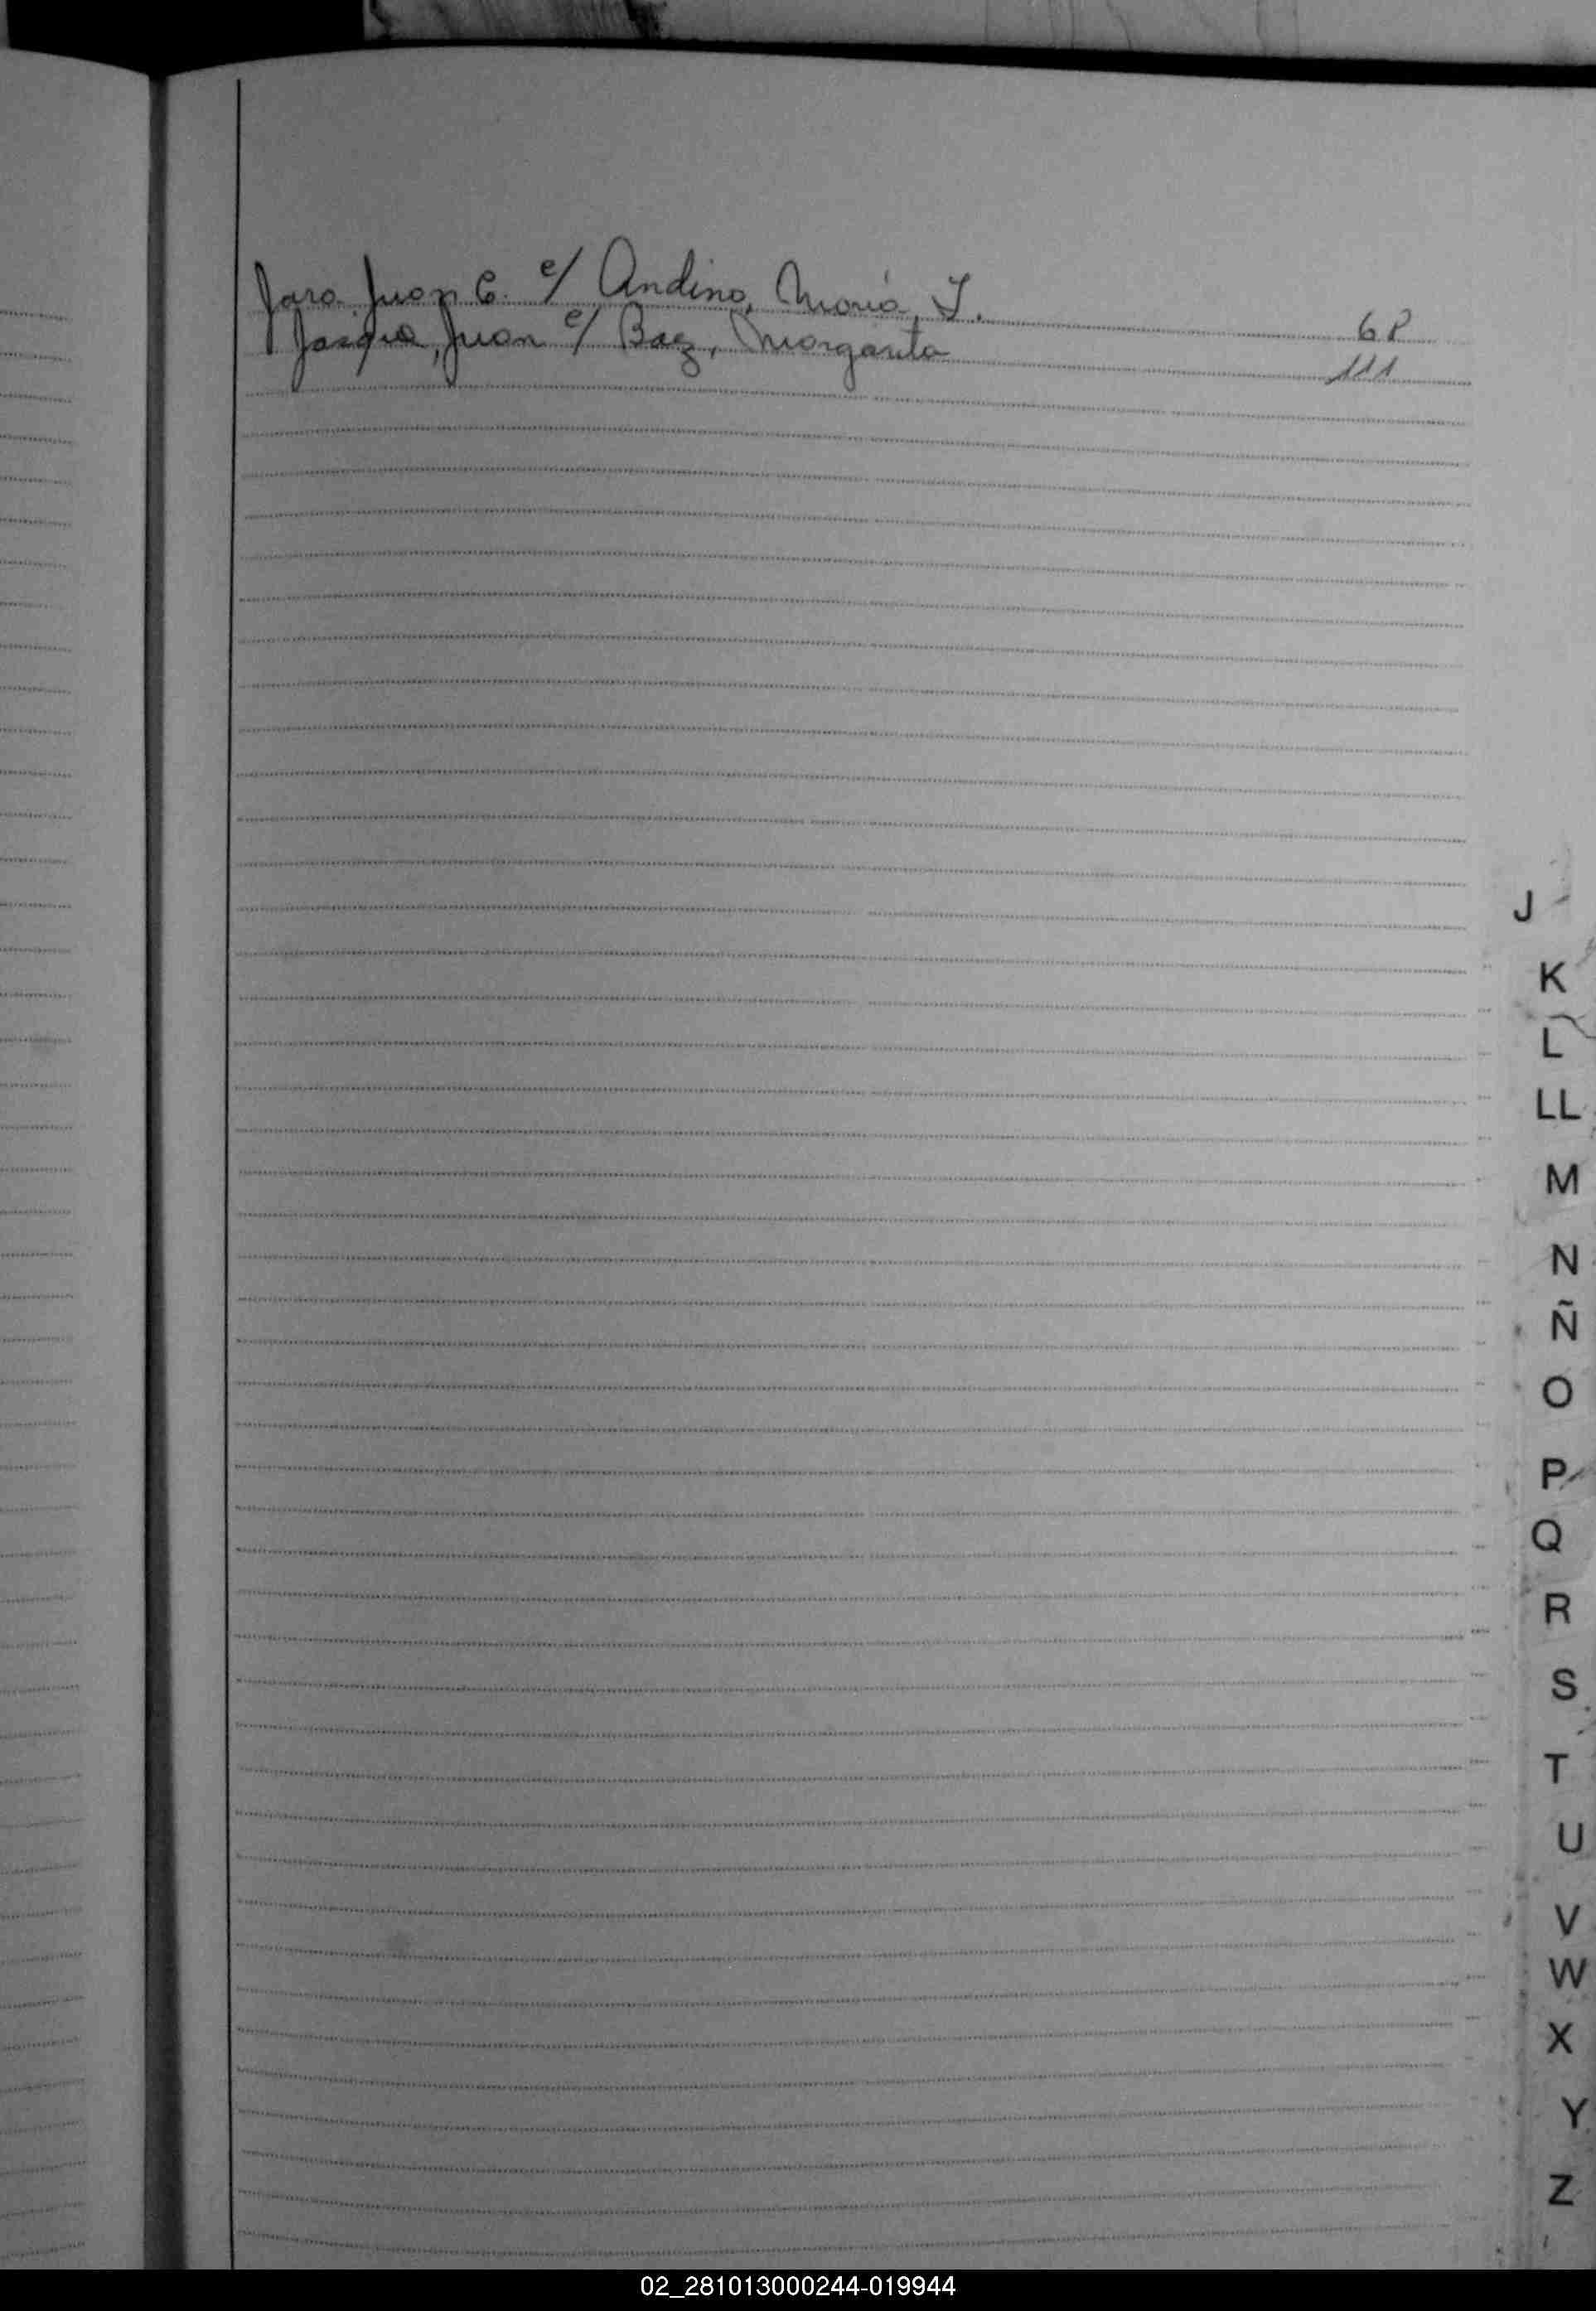 Jara Juan C. c/ Andino, María, I. 68
Juan c/ Baez, Margarita 111
J
K
L
LL
M
N
Ñ
O
P
Q
R
S
T
U
V
W
X
Y
Z
02_281013000244-019944